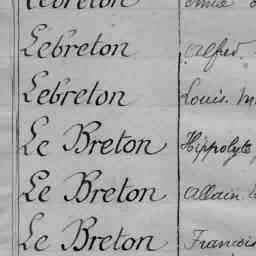 Lebreton
Lebreton Alfred.
Lebreton Louis. M
Le Breton Hippolyte
Le Breton Allain
Le Breton Francois